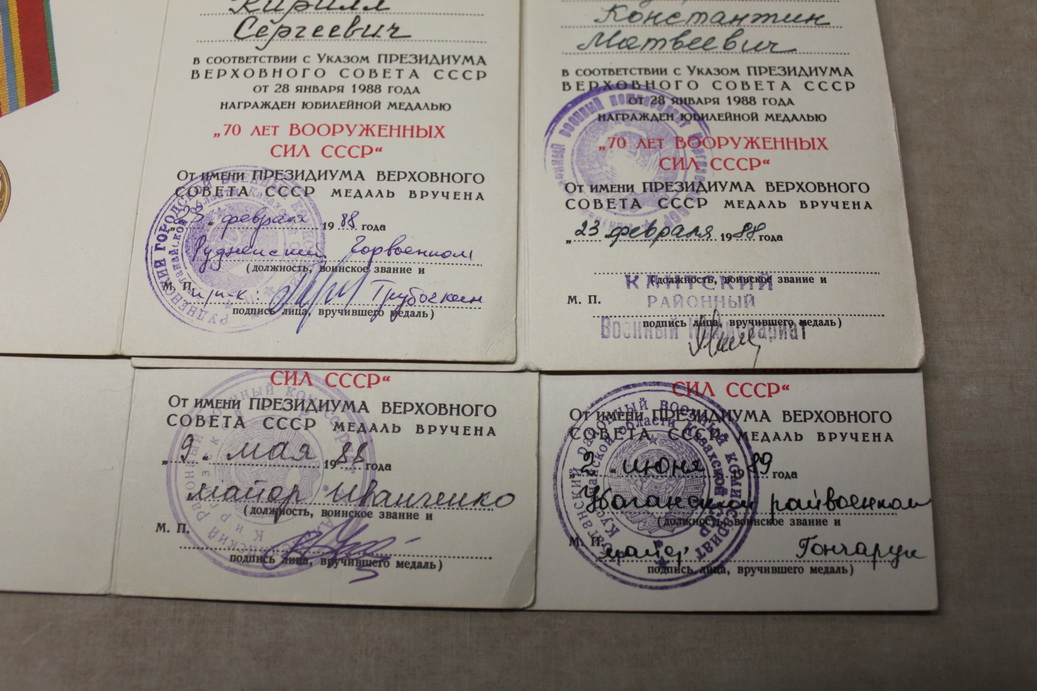 Кирилл
Сергеевич
в соответствии с Указом ПРЕЗИДИУМА
ВЕРХОВНОГО СОВЕТА СССР
от 28 января 1988 года
награжден юбилейной медалью
„70 лет ВООРУЖЕННЫХ
СИЛ СССР“
От имени ПРЕЗИДИУМА ВЕРХОВНОГО
СОВЕТА СССР медаль вручена
февраля 1988 года
Горвоенком
(должность, воинское звание и
М. П.
подпись лица, вручившего медаль)
Константин
Матвеевич
в соответствии с Указом ПРЕЗИДИУМА
ВЕРХОВНОГО СОВЕТА СССР
от 28 января 1988 года
награжден юбилейной медалью
„70 лет ВООРУЖЕННЫХ
СИЛ СССР“
От имени ПРЕЗИДИУМА ВЕРХОВНОГО
СОВЕТА СССР медаль вручена
„23 февраля 1988 года
(должность, воинское звание и
КАНТСКИЙ
М. П.
РАЙОННЫЙ
подпись лица, вручившего медаль)
Военный Комиссариат
СИЛ СССР“
От имени ПРЕЗИДИУМА ВЕРХОВНОГО
СОВЕТА СССР медаль вручена
„9. мая 1988 года
майор Иванченко
(должность, воинское звание и
М. П.
подпись лица, вручившего медаль)
СИЛ СССР“
От имени ПРЕЗИДИУМА ВЕРХОВНОГО
СОВЕТА СССР медаль вручена
июня 1989 года
райвоенком
(должность, воинское звание и
М. П.
майор Гончарук
подпись лица, вручившего медаль)